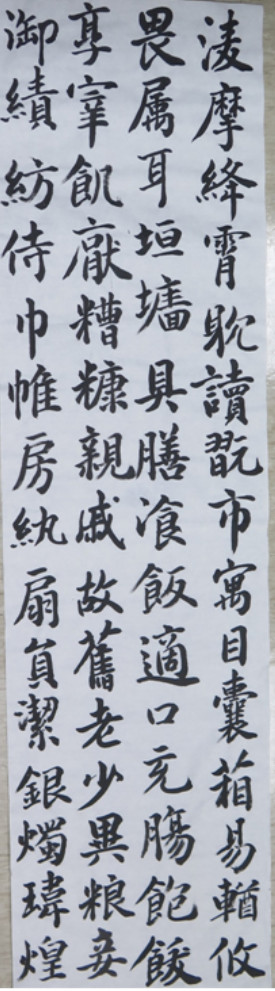 淩摩絳霄躭讀翫市寓目囊葙易輶攸
畏属耳垣墻具膳湌飯適口充腸飽飫
享宰飢厭糟糠親戚故舊老少異粮妾
御績紡侍巾帷房紈扇員潔銀燭瑋煌